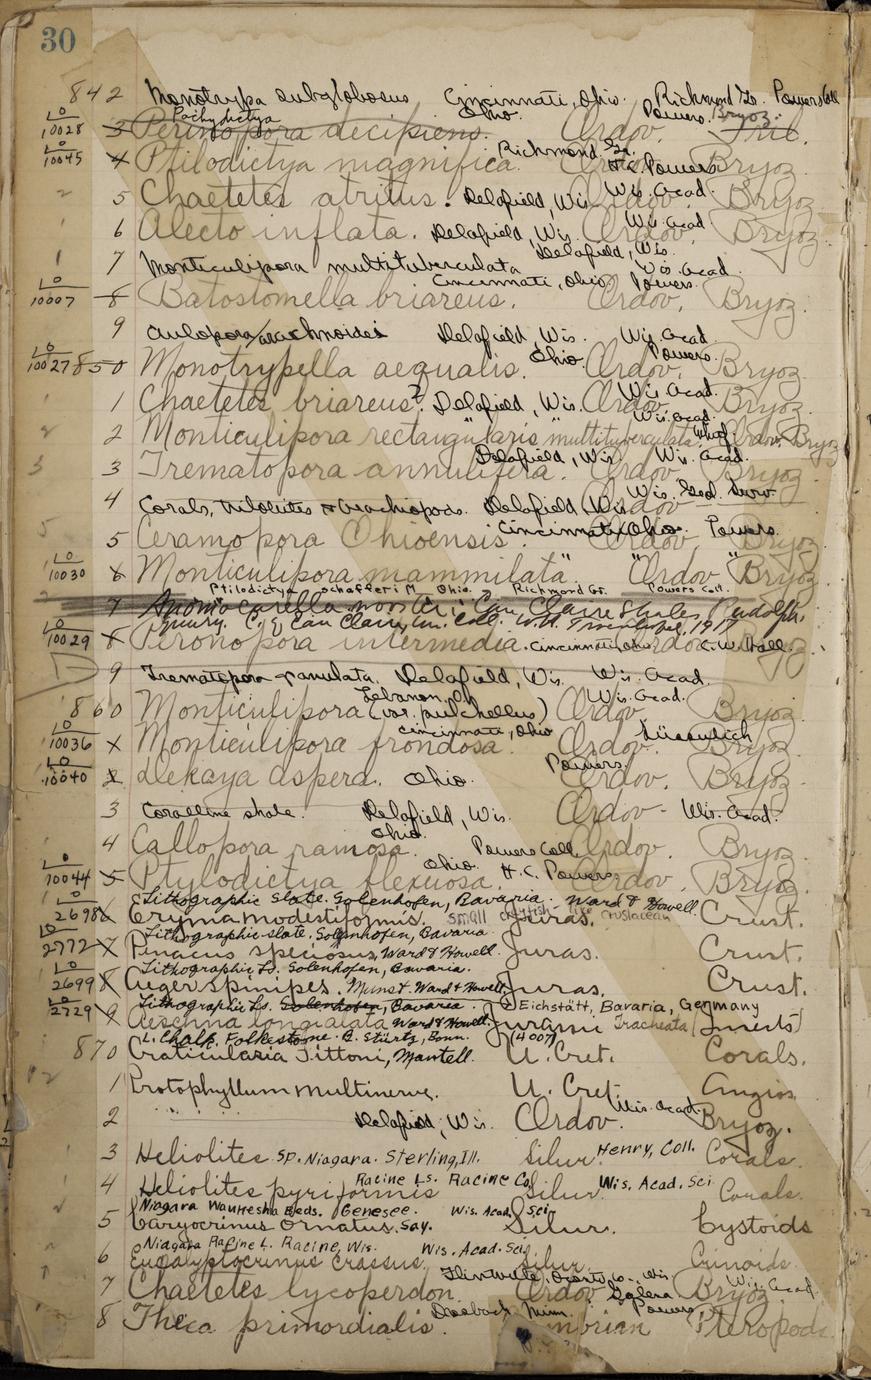 30
842 Monotrypa subglobosus Cincinnati, Ohio. Richmond Gr. Powers Coll
Pachydictya Ohio. Powers. Bryoz.
LO 10028 3 Peronopora decipiens. Ordov. Tril.
Richmond Gr. H.C. Powers
LO 10045 4 Ptilodictya magnifica. Ordov. Bryoz.
2 5 Chaetetes atritus. Delafield, Wis. Wis. Acad. Ordov. Bryoz
1 6 Alecto inflata. Delafield, Wis. Wis. Acad Ordov. Bryoz.
Delafield, Wis.
1 7 Monticulipora multituberculata Wis. Acad.
Cincinnati, Ohio. Powers.
LO 10007 8 Batostomella briareus. Ordov. Bryoz.
9 Aulopora arachnoidea Delafield, Wis. Wis. Acad.
Ohio Powers.
LO 10027 850 Monotrypella aequalis. Ordov. Bryoz.
1 Chaetetes briareus? Delafield, Wis. Wis. Acad. Ordov. Bryoz.
Wis. Acad.
2 2 Monticulipora rectangularis "multituberculata Whitf. Ordov. Bryoz
Delafield, Wis. Wis. Acad.
3 3 Trematopora annulifera. Ordov. Bryoz
4 Corals, trilobites & brachiopods. Delafield, Wis. Wis. Geol. Surv. Ordov
5 5 Ceramopora Ohioensis. Cincinnati, Ohio. Powers. Ordov. Bryoz
LO 10030 6 Monticulipora mammilata". "Ordov." Bryoz
Ptilodictya schafferi M. Ohio. Richmond Gr. Powers Coll.
7 Anomocarella woosteri; Eau Claire Shales Rudolph,
quarry. Eau Claire, Wis. Coll. 1917
LO 10029 8 Peronopora intermedia. Cincinnati, Ohio. Ordov. C.W. Hall.
9 Trematopora granulata. Delafield, Wis. Wis. Acad.
Lebanon, O. Wis. Acad.
860 Monticulipora (var. pulchellus) Ordov. Bryoz.
Cincinnati, Ohio
LO 10036 Monticulipora frondosa. Ordov. Bryoz.
Powers.
LO 10040 2 Dekaya aspera. Ohio. Ordov. Bryoz.
3 Coralline shale. Delafield, Wis. Ordov. Wis. Acad.
Ohio.
4 Callopora ramosa. Powers Coll. Ordov. Bryoz.
Ohio. H.C. Powers
LO 10044 5 Ptylodictya flexuosa. Ordov. Bryoz
Lithographic Slate. Solenhofen, Bavaria. Ward & Howell.
LO 2698 6 Eryma modestiformis. small crayfish-like crustacean Juras. Crust.
Lithographic slate, Solenhofen, Bavaria
LO 2772 7 Penaeus speciosus, Ward & Howell. Juras. Crust.
Lithographic Ls. Solenhofen, Bavaria.
LO 2699 8 Aeger spinipes. Munst. Ward & Howell Juras. Crust.
Lithographic Ls. Solenhofen, Bavaria. Eichstätt, Bavaria, Germany
LO 2729 9 Aeschna longialata Ward & Howell. Jurassic Tracheata (Insects)
L. Chalk. Folkestone. B. Stürtz, Bonn. (4007)
870 Craticularia Fittoni, Mantell. U. Cret. Corals.
1 Protophyllum multinerve. U. Cret. Angios.
2 " " Delafield, Wis. Ordov. Wis. Acad. Bryoz.
3 Heliolites sp. Niagara. Sterling, Ill. Silur. Henry, Coll. Corals.
Racine Ls. Racine Co. Wis. Acad. Sci
4 Heliolites pyriformis Silur. Corals.
Niagara Waukesha Beds. Genesee. Wis. Acad. Sci.
5 Caryocrinus ornatus. Say. Silur. Cystoids
Niagara Racine L. Racine, Wis. Wis. Acad. Sci.
6 Eucalyptocrinus crassus. Silur. Crinoids.
Oconto Co., Wis. Wis. Acad
7 Chaetetes lycoperdon. Ordov. Galena. Bryoz.
Minn. Powers
8 Theca primordialis. Cambrian Pteropods.